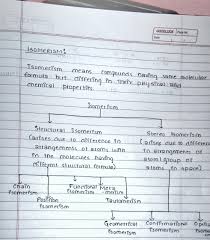 GOODLUCK Page No.
Date
ISOMERISM:
Isomerism means compounds having same molecular
formula but differing in their physical and
chemical properties.
Isomerism
Structural Isomerism
Stereo Isomerism
(arises due to difference in
arrangements of atoms with
in the molecules having
different structural formula)
(arises due to difference
in arrangement of
atom/group of
atoms in space)
Chain
Isomerism
Position
Isomerism
Functional
Isomerism
Meta
Tautomerism
Geometrical
Isomerism
Conformational
Isomerism